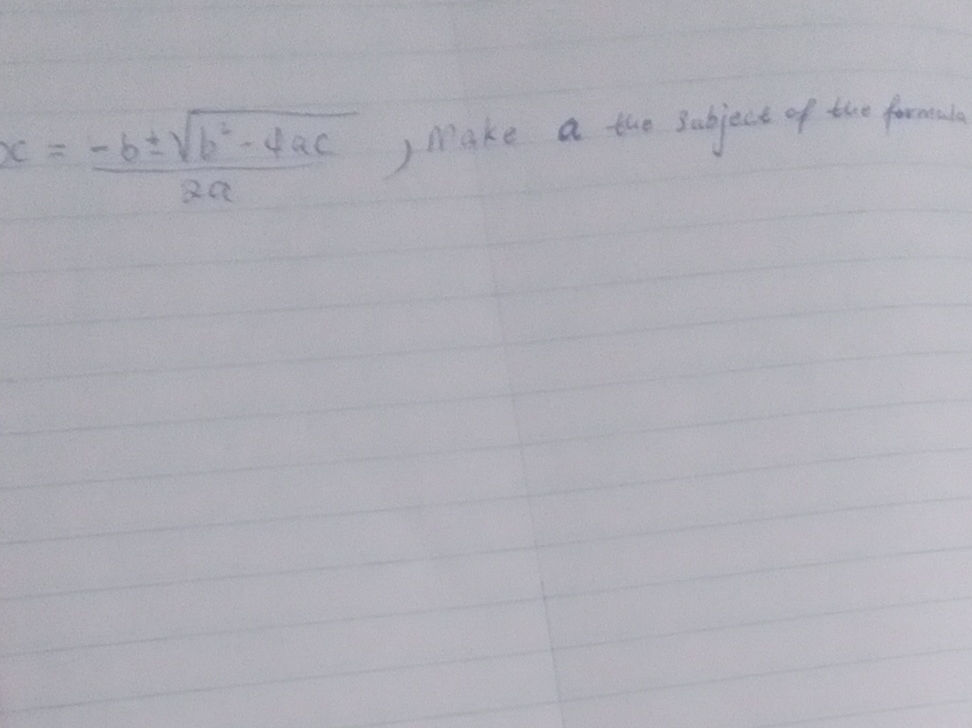 x = \frac{-b \pm \sqrt{b^2 - 4ac}}{2a} , Make a the subject of the formula